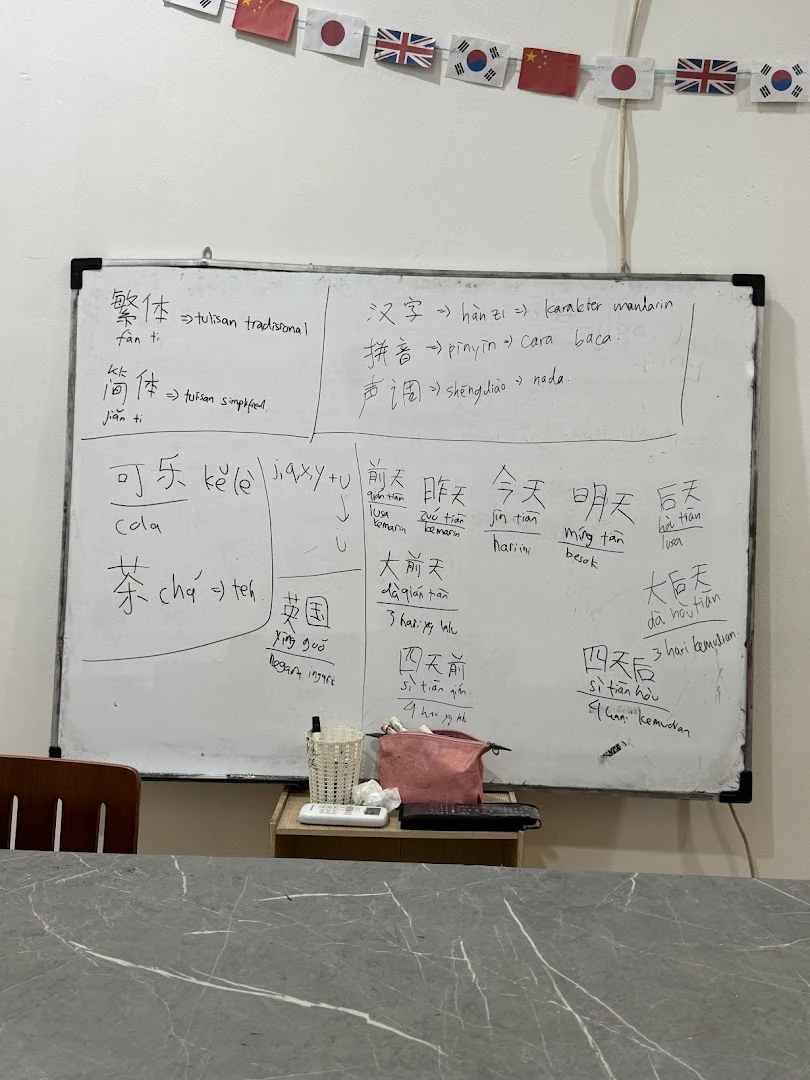 繁体 => tulisan tradisional
fán tǐ
简体 => tulisan simplified
jiǎn tǐ
汉字 => hàn zì => karakter mandarin
拼音 => pīnyīn => cara baca.
声调 => shēngdiào => nada.
可乐 kě lè
cola
茶 chá => teh
j, q, x, y + ü
↓
u
英国
yīng guó
negara inggris
前天
qián tiān
lusa
kemarin
昨天
zuó tiān
kemarin
今天
jīn tiān
hari ini
明天
míng tān
besok
后天
hòu tiān
lusa
大前天
dà qián tiān
3 hari yg lalu
大后天
dà hòu tiān
3 hari kemudian.
四天前
sì tiān qián
4 hari yg
四天后
sì tiān hòu
4 hari kemudian